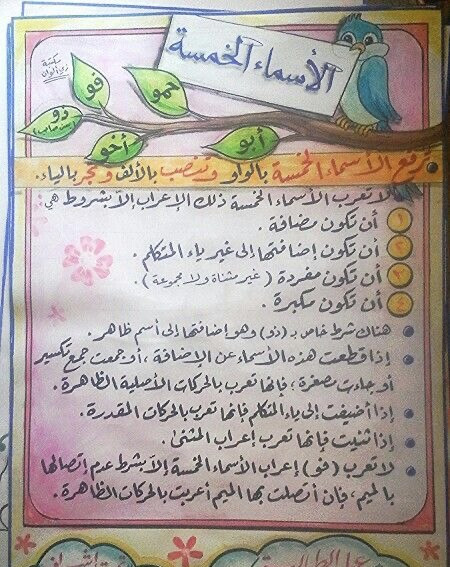 الأسماء الخمسة
مكتبة
حمو
فو
ذو
(صاحب)
أخو
أبو
ترفع الأسماء الخمسة بالواو وتنصب بالألف وتجر بالياء.
لا تعرب الأسماء الخمسة ذلك الإعراب إلا بشروط هي
١ أن تكون مضافة.
٢ أن تكون إضافتها إلى غير ياء المتكلم.
٣ أن تكون مفردة (غير مثناة ولا مجموعة).
٤ أن تكون مكبرة.
هناك شرط خاص بـ (ذو) وهو إضافتها إلى أسم ظاهر.
إذا قطعت هذه الأسماء عن الإضافة، أو جمعت جمع تكسير
أو جاءت مصغرة، فإنها تعرب بالحركات الأصلية الظاهرة.
إذا أضيفت إلى ياء المتكلم فإنها تعرب بالحركات المقدرة.
إذا ثنيت فإنها تعرب إعراب المثنى.
لا تعرب (فو) إعراب الأسماء الخمسة إلا بشرط عدم إتصالها
بالميم، فإن أتصلت بها الميم أعربت بالحركات الظاهرة.